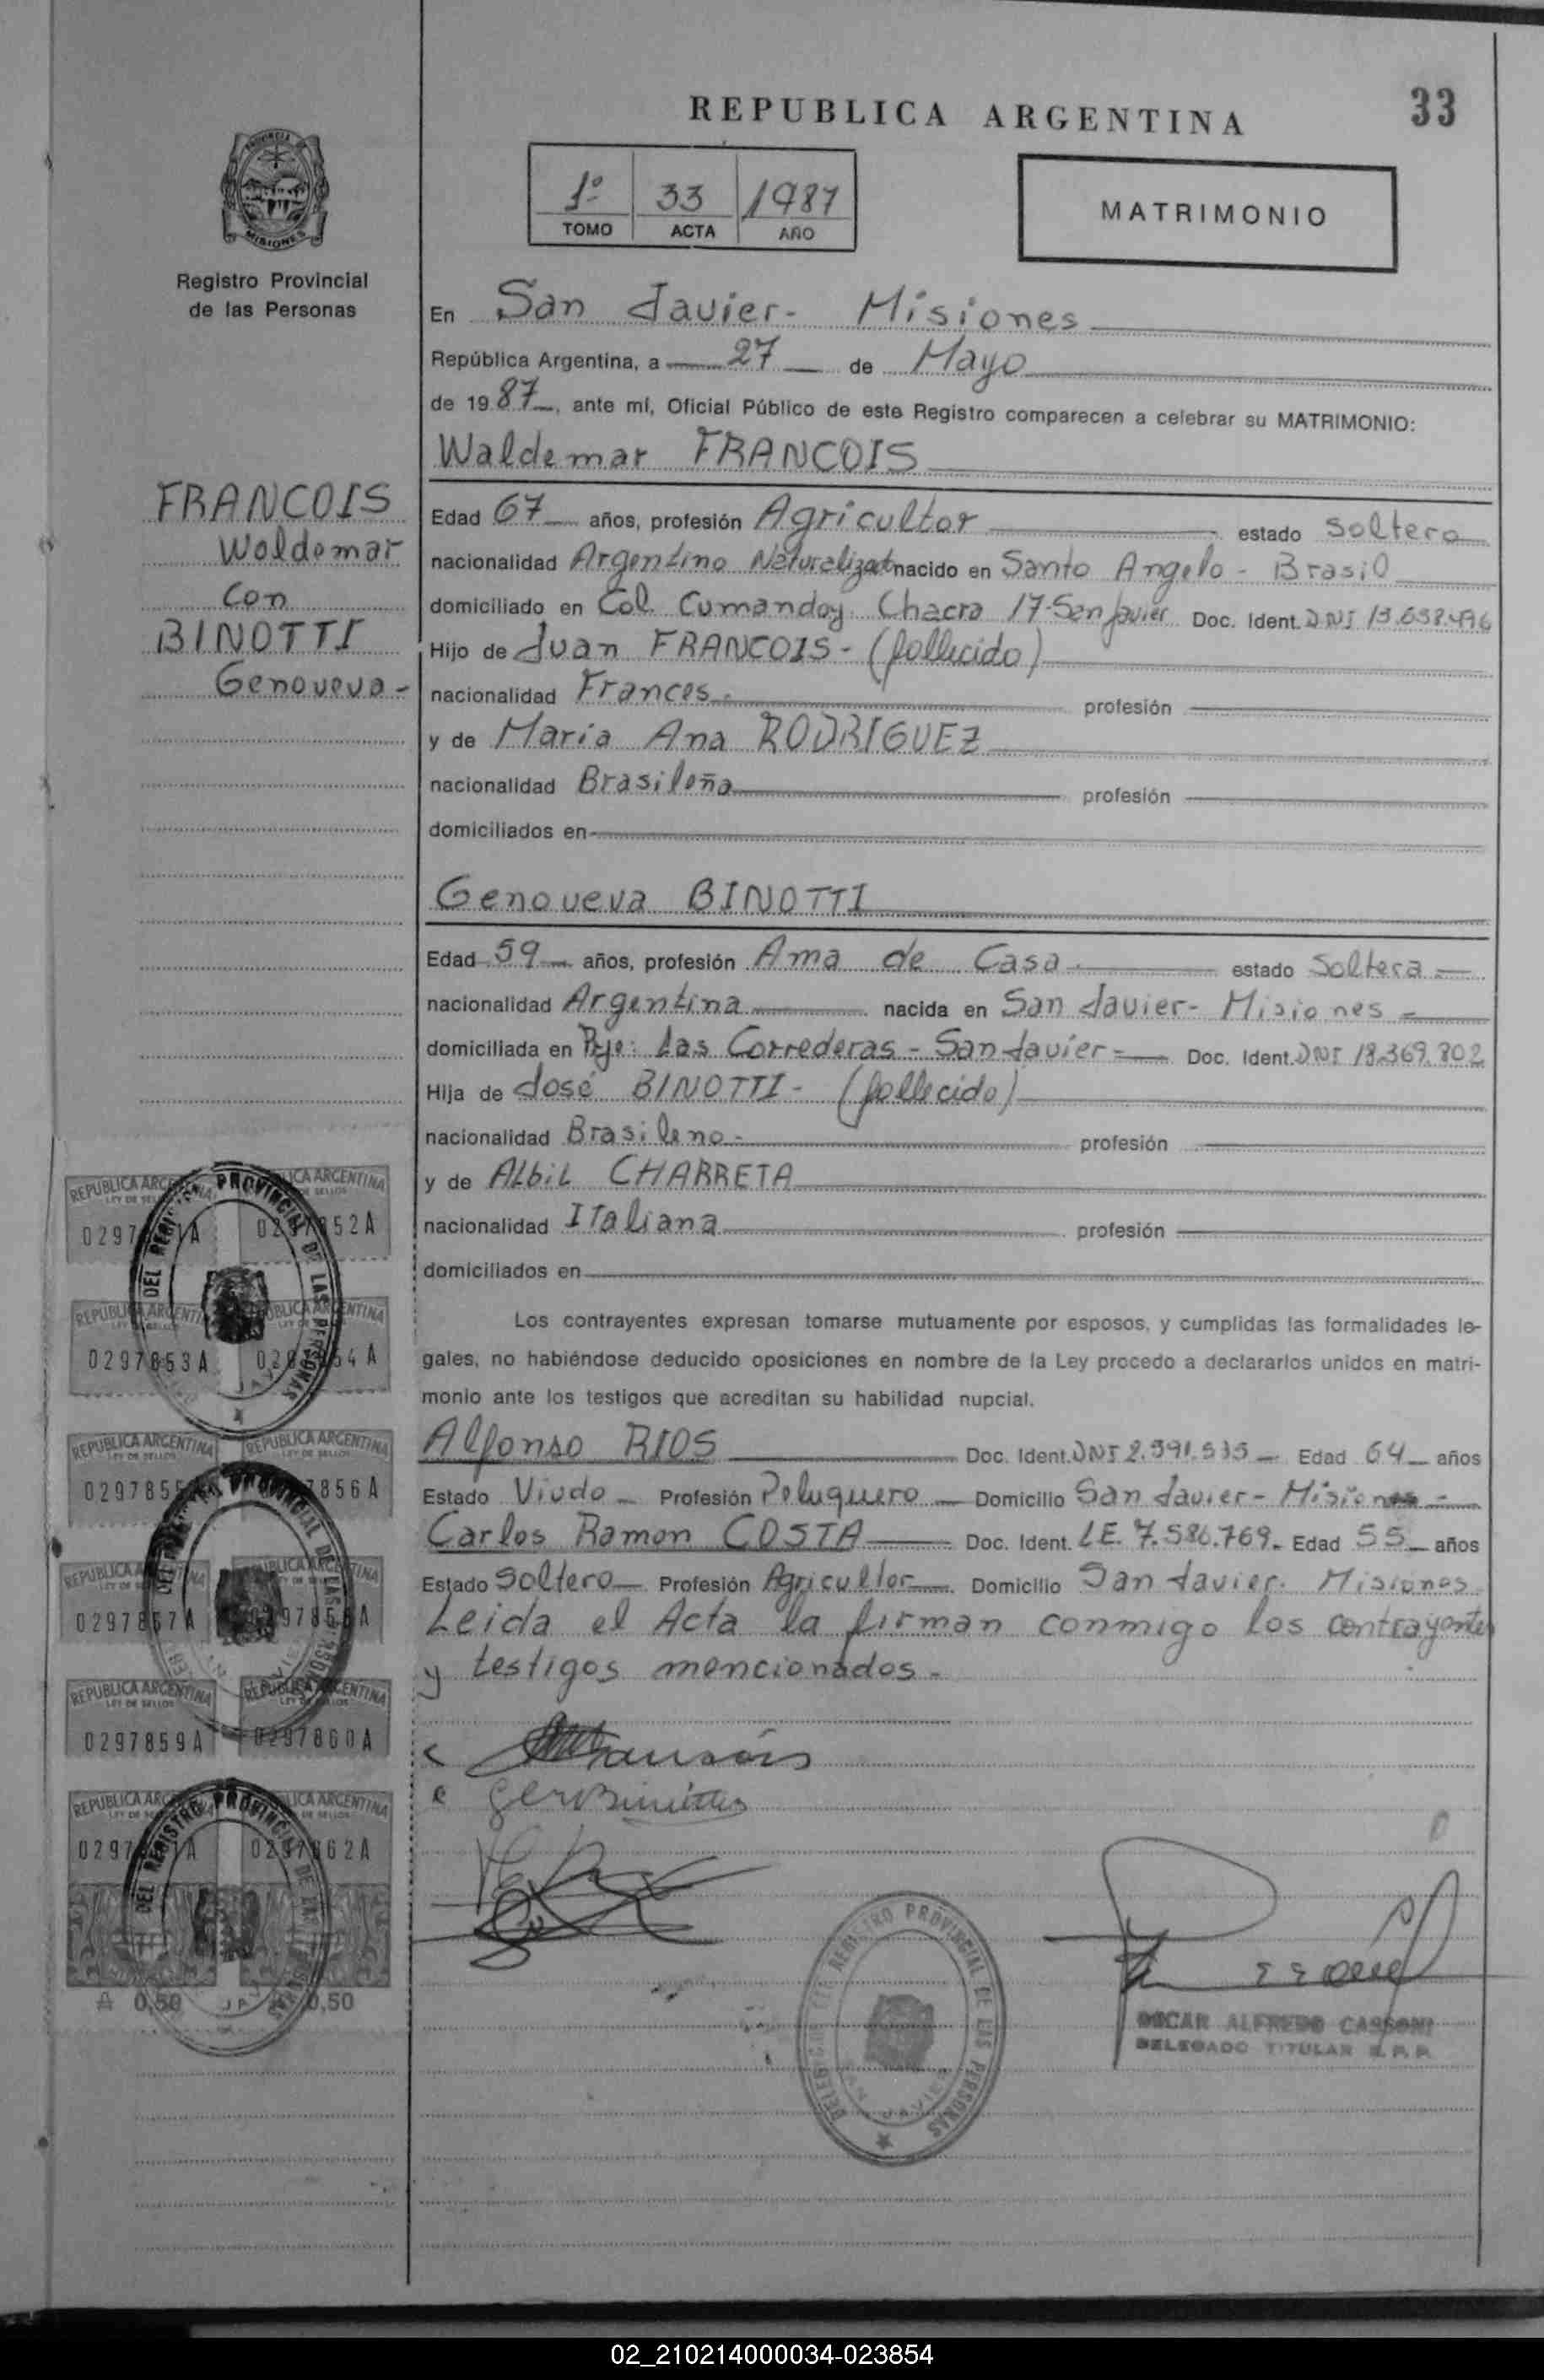 REPUBLICA ARGENTINA
33
1º 33 1987
TOMO ACTA AÑO
MATRIMONIO
PROVINCIA
MISIONES
Registro Provincial
de las Personas
FRANCOIS
Waldemar
con
BINOTTI
Genoveva-
En San Javier- Misiones
República Argentina, a 27 de Mayo
de 1987, ante mí, Oficial Público de este Registro comparecen a celebrar su MATRIMONIO:
Waldemar FRANCOIS
Edad 67 años, profesión Agricultor estado Soltero
nacionalidad Argentino Naturalizat nacido en Santo Angelo - Brasil
domiciliado en Col. Cumanday. Chacra 17-San Javier Doc. Ident. DNI
Hijo de Juan FRANCOIS - (fallecido)
nacionalidad Frances- profesión
y de Maria Ana RODRIGUEZ
nacionalidad Brasileña profesión
domiciliados en
Genoveva BINOTTI
Edad 59 años, profesión Ama de Casa estado Soltera
nacionalidad Argentina nacida en San Javier- Misiones
domiciliada en Pje: Las Correderas - San Javier Doc. Ident. DNI 18.369.802
Hija de José BINOTTI - (fallecido)
nacionalidad Brasileno- profesión
y de Albil CHARRETA
nacionalidad Italiana profesión
domiciliados en
Los contrayentes expresan tomarse mutuamente por esposos, y cumplidas las formalidades le-
gales, no habiéndose deducido oposiciones en nombre de la Ley procedo a declararlos unidos en matri-
monio ante los testigos que acreditan su habilidad nupcial.
Alfonso RIOS Doc. Ident. DNI 2.591.535 Edad 64 años
Estado Viudo Profesión Peluquero Domicilio San Javier- Misiones
Carlos Ramon COSTA Doc. Ident. LE. 7.586.769. Edad 55 años
Estado Soltero Profesión Agricultor Domicilio San Javier. Misiones
Leida el Acta la firman conmigo los contrayentes
y testigos mencionados.
REPUBLICA ARGENTINA
LEY DE SELLOS
0297852A
0297853A
0297854A
0297855
0297856A
0297857A
0297858A
0297859A
0297860A
0297862A
0,50 0,50
DEL REGISTRO PROVINCIAL DE LAS PERSONAS
OSCAR ALFREDO CASSONI
DELEGADO TITULAR R.P.P.
DELEGACION DEL REGISTRO PROVINCIAL DE LAS PERSONAS
SAN JAVIER
02_210214000034-023854